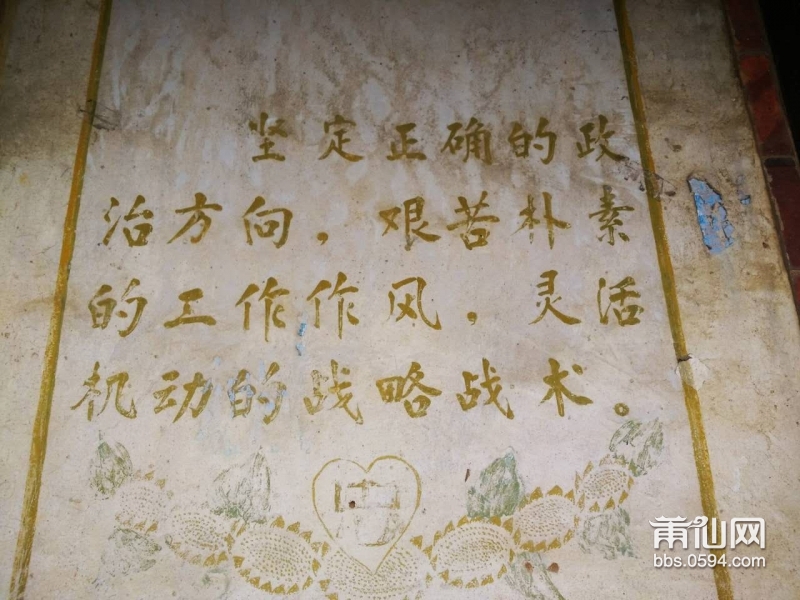 坚定正确的政
治方向，艰苦朴素
的工作作风，灵活
机动的战略战术。
忠
莆仙网
bbs.0594.com